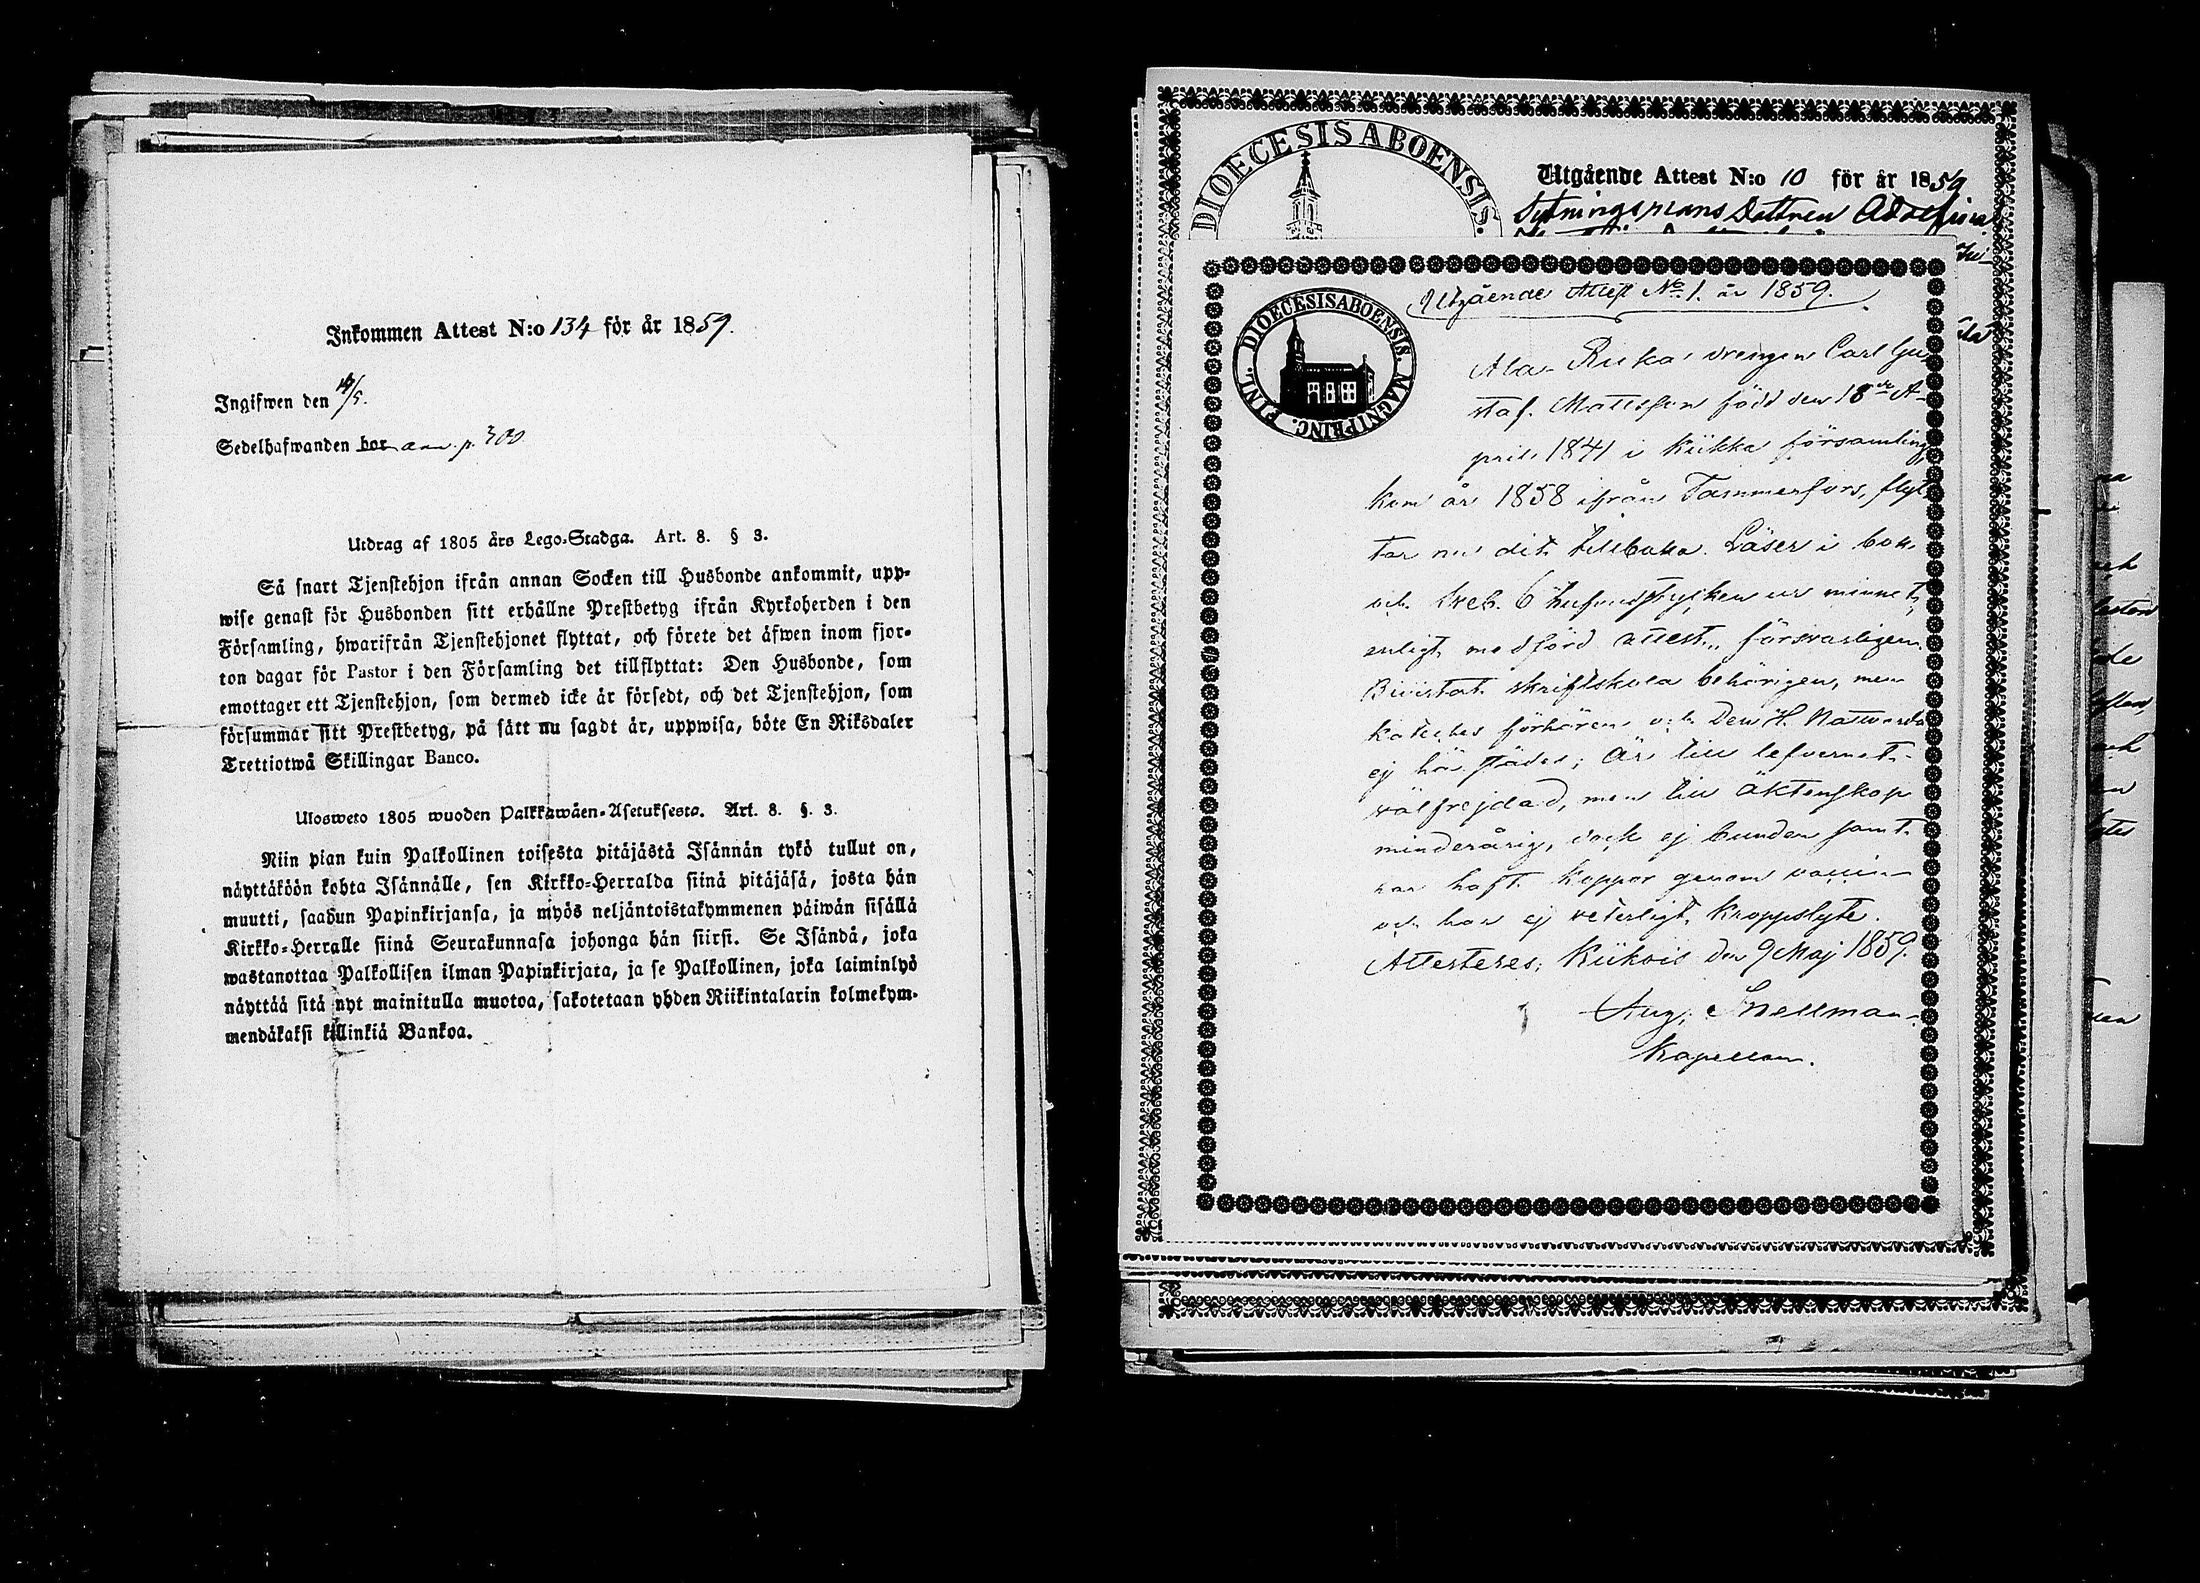 Inkommen Attest N:o 134 för år 1859.
Ingifwen den 14/5.
Sedelhafwanden bor p. 300
Utdrag af 1805 års Lego-Stadga. Art. 8. § 3.
Så snart Tjenstehjon ifrån annan Socken till Husbonde ankommit, upp-
wise genast för Husbonden sitt erhållne Prestbetyg ifrån Kyrkoherden i den
Församling, hwarifrån Tjenstehjonet flyttat, och förete det äfwen inom fjor-
ton dagar för Pastor i den Församling det tillflyttat: Den Husbonde, som
emottager ett Tjenstehjon, som dermed icke är försedt, och det Tjenstehjon, som
försummar sitt Prestbetyg, på sätt nu sagdt är, uppwisa, böte En Riksdaler
Trettiotwå Skillingar Banco.
Ulosweto 1805 wuoden Palkkawäen-Asetuksesta. Art. 8. §. 3.
Niin pian kuin Palkollinen toisesta pitäjästä Isännän tykö tullut on,
näyttäköön kohta Isännälle, sen Kirkko-Herralda siinä pitäjäsä, josta hän
muutti, saadun Papinkirjansa, ja myös neljäntoistakymmenen päiwän sisällä
Kirkko-Herralle siinä Seurakunnasa johonga hän siirsi. Se Isändä, joka
wastanottaa Palkollisen ilman Papinkirjata, ja se Palkollinen, joka laiminlyö
näyttää sitä nyt mainitulla muotoa, sakotetaan yhden Riikintalarin kolmekym-
mendäkaksi killinkiä Bankoa.
DIOECESIS ABOENSIS.
Utgående Attest N:o 10 för år 1859
Sytningsmans Dottren Adolfina
DIOECESIS ABOENSIS. MAGNI PRINC. FINL.
Utgående Attest No 1. år 1859.
Ala-Ruka drengen Carl Gu-
staf Mattsson född den 18de A-
pril 1841 i Kiikka församling,
kom år 1858 ifrån Tammerfors, flyt-
tar nu dit tillbaka. Läser i bok
och 6 hufvudstycken ur minnet,
enligt medförd attest, försvarligen.
Bivistat skriftskola behörigen, men
förhören och Den H. Nattvard
ej här; Är till lefvernet
välfrejdad, men till äktenskap
minderårig, dock ej bunden samt
har haft koppor genom
och har ej veterligt kroppslyte.
Attesteres, Kiikois den 9 Maj 1859.
Aug. Snellman.
Kapellan.